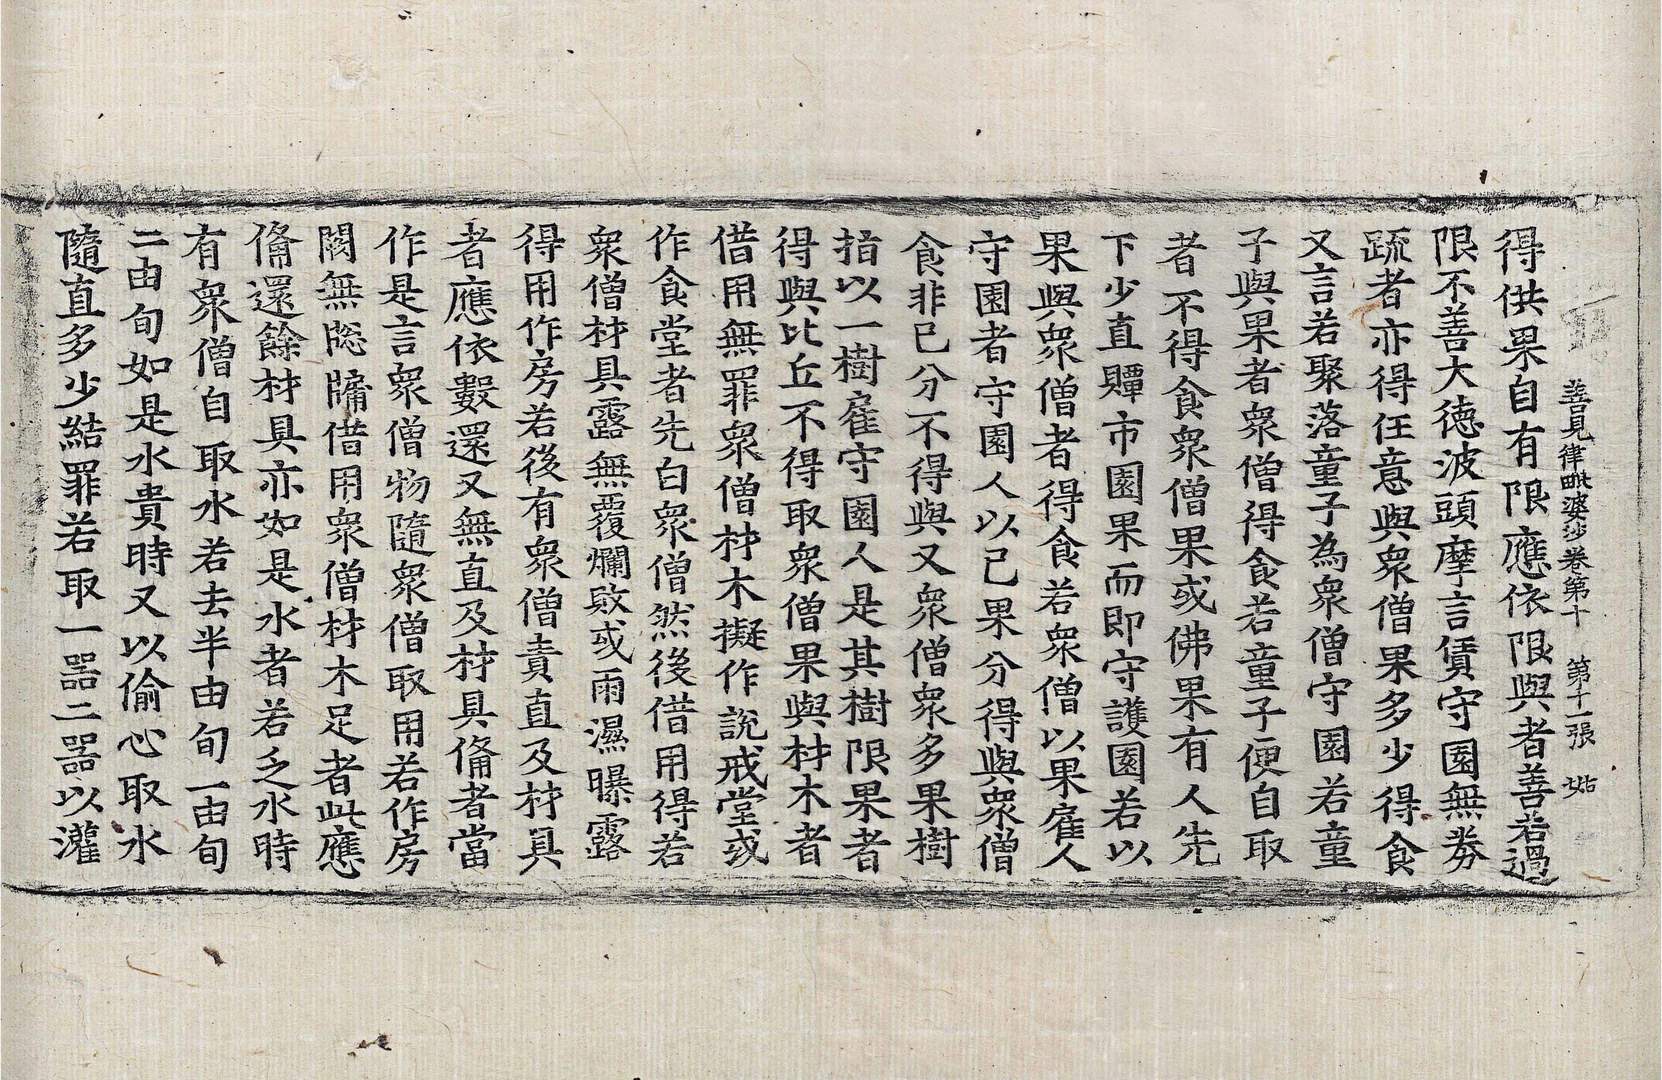 善見律毗婆沙卷第十 第十一張 姑
得供果自有限應依限與者善若過
限不善大德波頭摩言賃守園無券
䟽者亦得任意與衆僧果多少得食
又言若聚落童子為衆僧守園若童
子與果者衆僧得食若童子便自取
者不得食衆僧果或佛果有人先
下少直贉市園果而即守護園若以
果與衆僧者得食若衆僧以果雇人
守園者守園人以己果分得與衆僧
食非已分不得與又衆僧衆多果樹
指以一樹雇守園人是其樹限果者
得與比丘不得取衆僧果與材木者
借用無罪衆僧材木擬作說戒堂或
作食堂者先白衆僧然後借用得若
衆僧材具露無覆爛敗或雨濕曝露
得用作房若後有衆僧責直及材具
者應依數還又無直及材具俻者當
作是言衆僧物隨衆僧取用若作房
闕無䆫牖借用衆僧材木足者此應
俻還餘材具亦如是水者若乏水時
有衆僧自取水若去半由旬一由旬
二由旬如是水貴時又以偷心取水
隨直多少結罪若取一器二器以灌